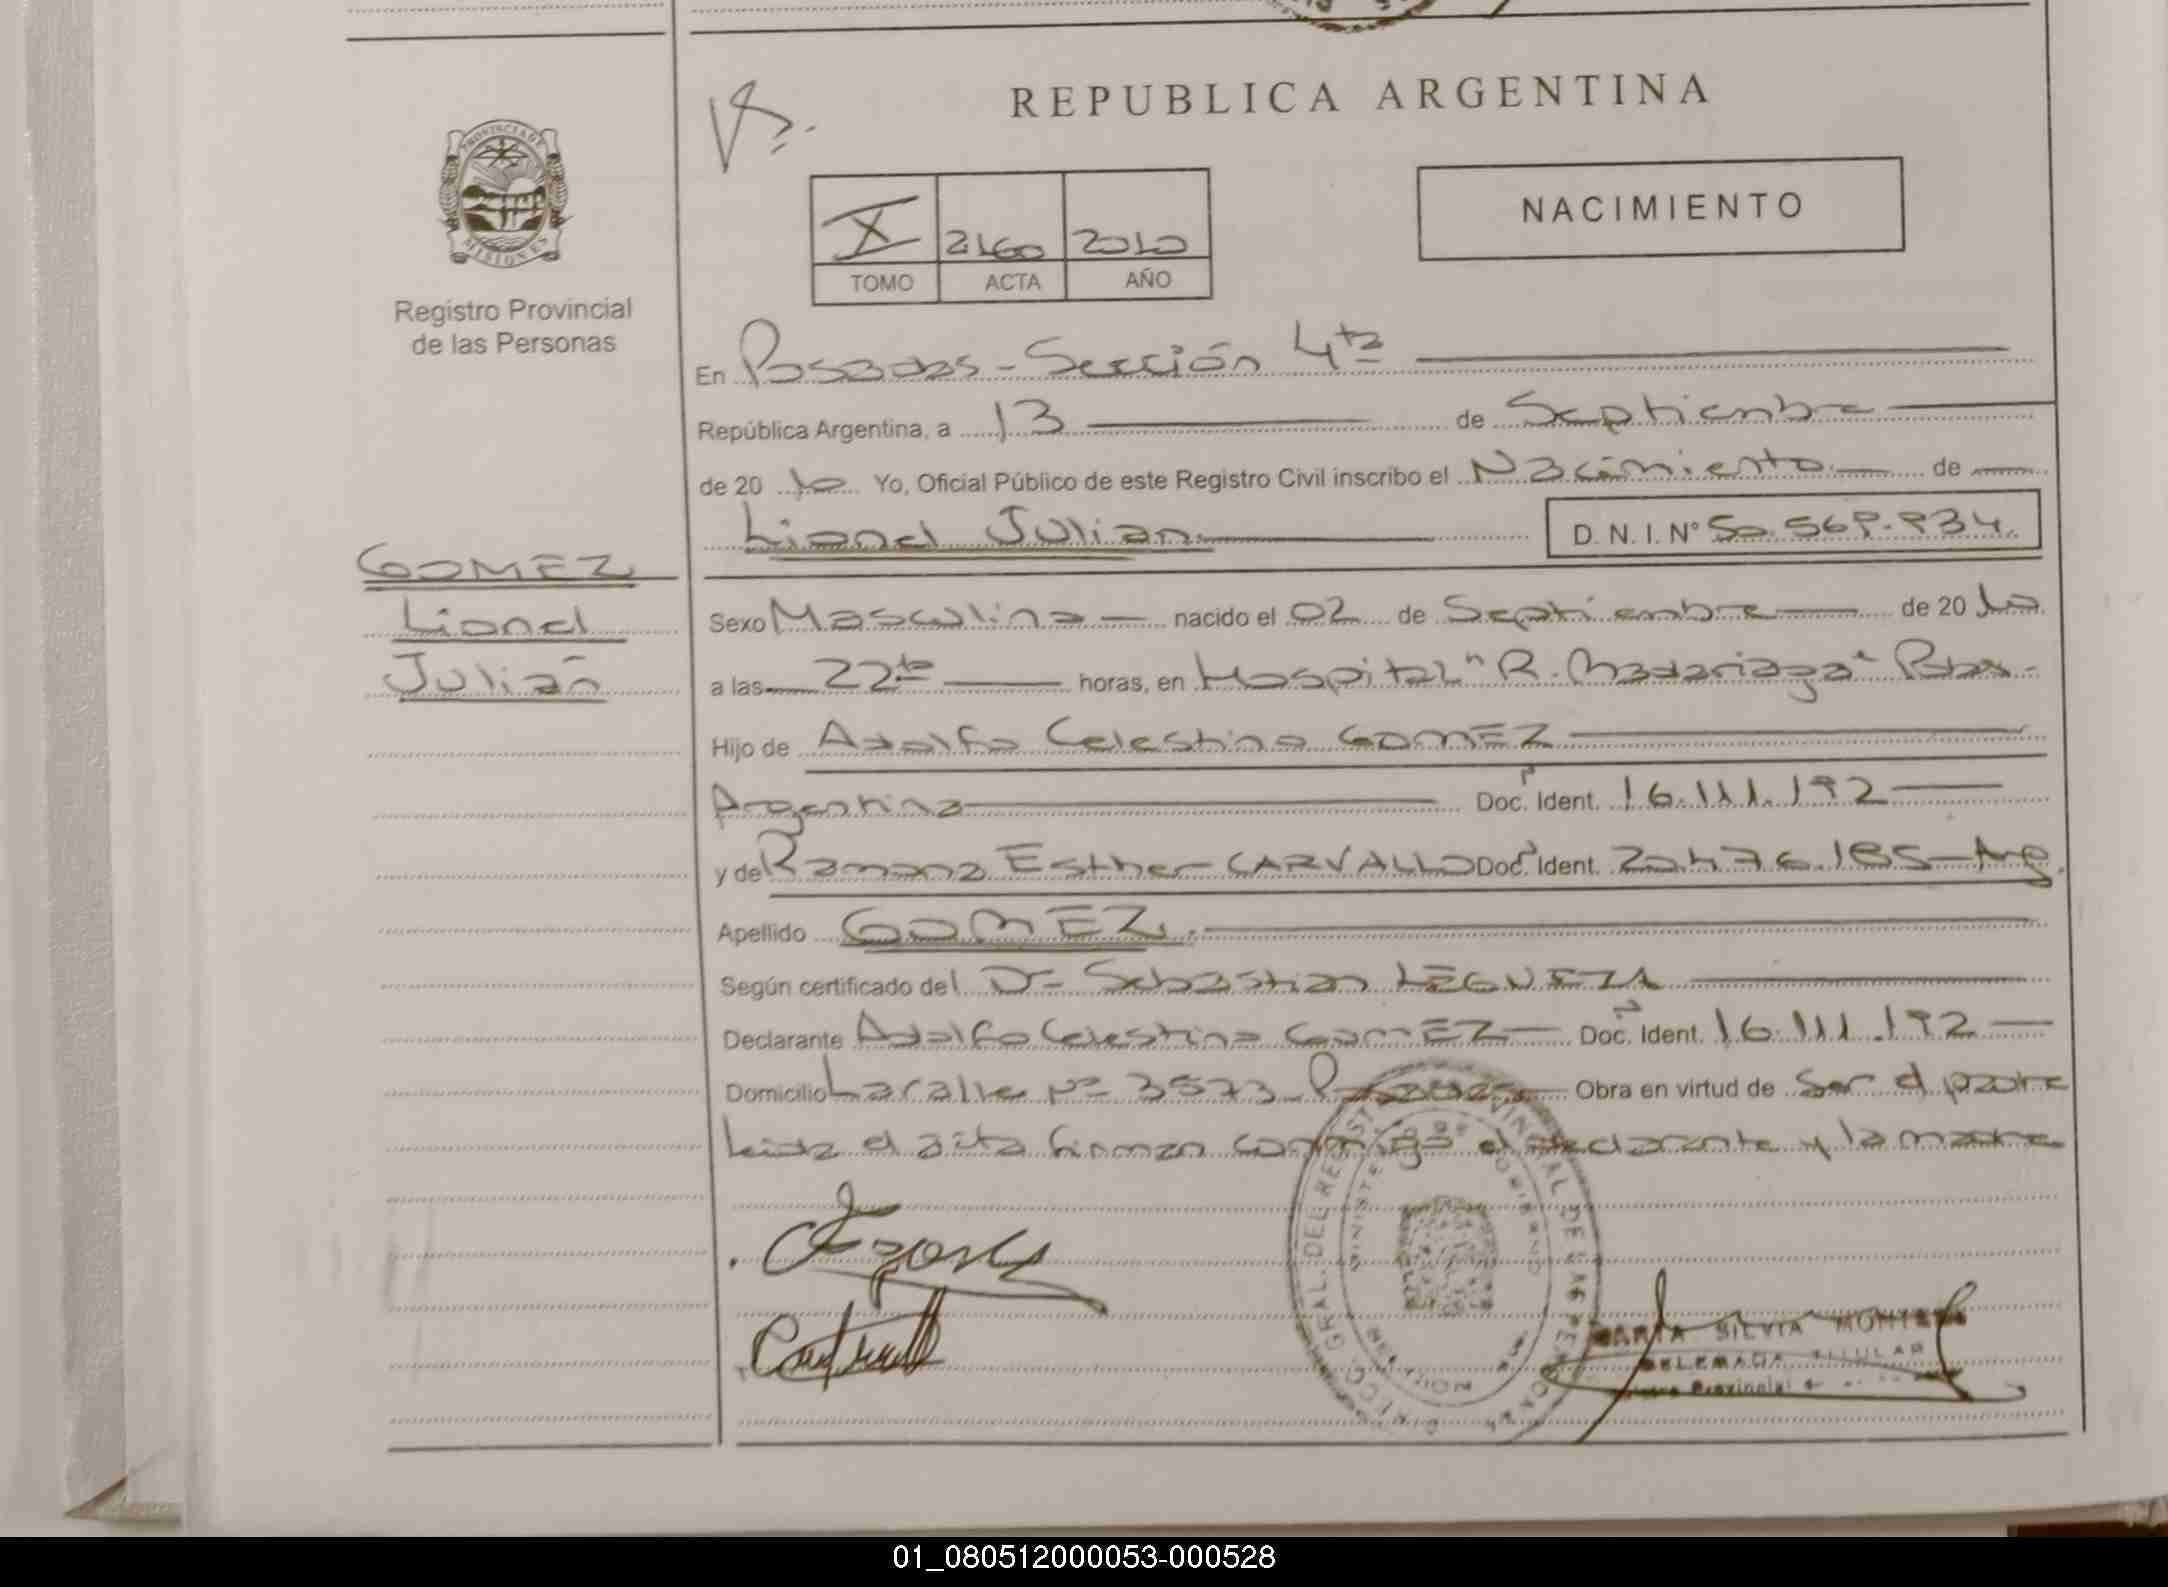 REPUBLICA ARGENTINA
PROVINCIA DE
MISIONES
Registro Provincial
de las Personas
X 2160 2010
TOMO ACTA AÑO
NACIMIENTO
En Posadas - Sección 4ta
República Argentina, a 13 de Septiembre
de 20 10 Yo, Oficial Público de este Registro Civil inscribo el Nacimiento de
Lionel Julian D.N.I. Nº 50.569.934.
GOMEZ
Lionel
Julián
Sexo Masculino nacido el 02 de Septiembre de 20 10
a las 22 horas, en Hospital "R. Madariaga" Pdas.
Hijo de Adolfo Celestino GOMEZ
Argentino Doc. Ident. 16.111.192
y de Ramona Esther CARVALLO Doc. Ident. 20.476.185
Apellido GOMEZ.
Según certificado del Dr Sebastian
Declarante Adolfo Celestino GOMEZ Doc. Ident. 16.111.192
Domicilio Lacalle Nº 3573 Posadas Obra en virtud de Ser el padre
Leida el acta firman conmigo el declarante y la madre
MARIA SILVIA
DELEGADA TITULAR
01_080512000053-000528